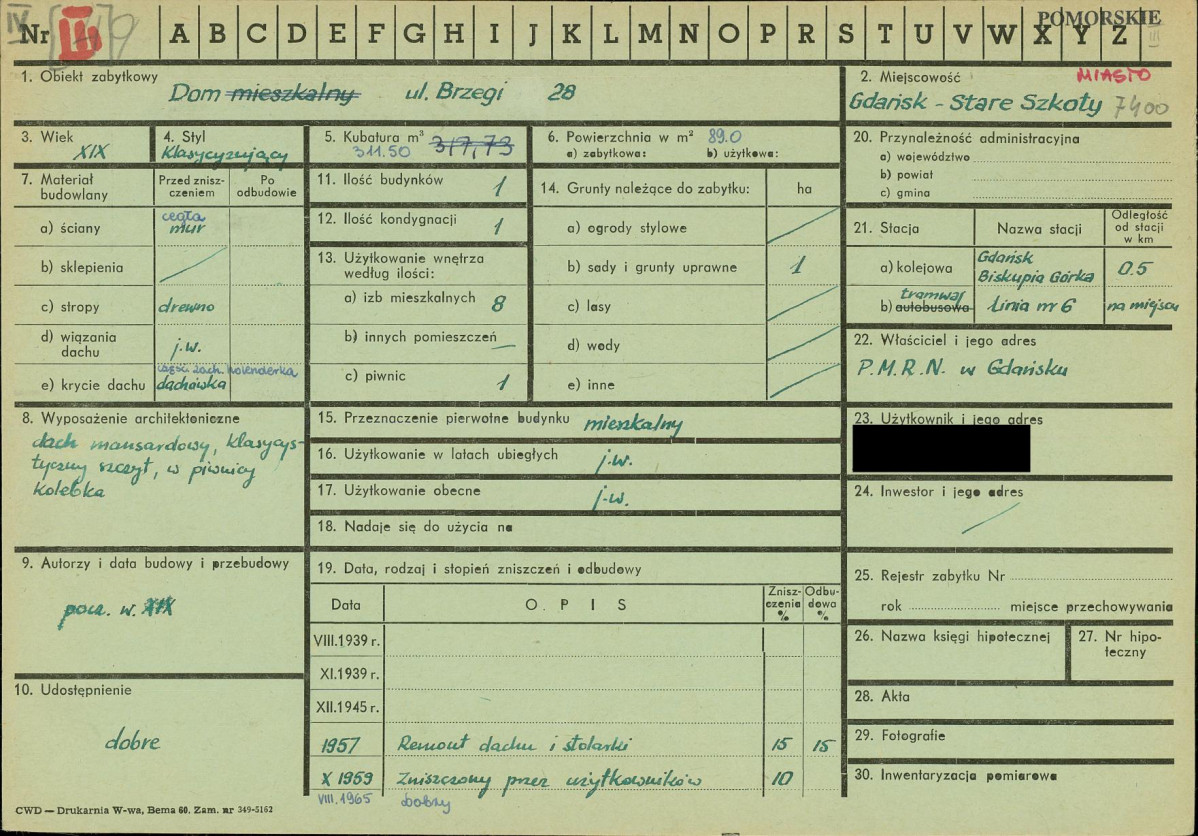 IV
Nr III [49]
A B C D E F G H I J K L M N O P R S T U V W X Y Z
POMORSKIE
III
1. Obiekt zabytkowy
Dom mieszkalny ul. Brzegi 28
2. Miejscowość
MIASTO
Gdańsk - Stare Szkoty 7400
3. Wiek
XIX
4. Styl
Klasycyzujący
5. Kubatura m³
311.50 317,73
6. Powierzchnia w m² 89.0
a) zabytkowa: b) użytkowa:
7. Materiał budowlany
Przed zniszczeniem
Po odbudowie
a) ściany
cegła
mur
b) sklepienia
c) stropy drewno
d) wiązania dachu j.w.
e) krycie dachu
części zach. holenderka
dachówka
8. Wyposażenie architektoniczne
dach mansardowy, klasycys-
tyczny szczyt, w piwnicy
kolebka
9. Autorzy i data budowy i przebudowy
pocz. w. XIX
10. Udostępnienie
dobre
11. Ilość budynków 1
12. Ilość kondygnacji 1
13. Użytkowanie wnętrza
według ilości:
a) izb mieszkalnych 8
b) innych pomieszczeń —
c) piwnic 1
14. Grunty należące do zabytku: ha
a) ogrody stylowe
b) sady i grunty uprawne 1
c) lasy
d) wody
e) inne
15. Przeznaczenie pierwotne budynku mieszkalny
16. Użytkowanie w latach ubiegłych j.w.
17. Użytkowanie obecne j.w.
18. Nadaje się do użycia na
19. Data, rodzaj i stopień zniszczeń i odbudowy
Data
OPIS
Zniszczenia %
Odbudowa %
VIII.1939 r.
XI.1939 r.
XII.1945 r.
1957 Remont dachu i stolarki 15 15
X 1959 Zniszczony przez użytkowników 10
VIII.1965 dobry
20. Przynależność administracyjna
a) województwo
b) powiat
c) gmina
21. Stacja
Nazwa stacji
Odległość od stacji w km
a) kolejowa Gdańsk Biskupia Górka 0.5
tramwaj
b) autobusowa Linia nr 6 na miejscu
22. Właściciel i jego adres
P.M.R.N. w Gdańsku
23. Użytkownik i jego adres
24. Inwestor i jego adres
25. Rejestr zabytku Nr
rok miejsce przechowywania
26. Nazwa księgi hipotecznej
27. Nr hipo-
teczny
28. Akta
29. Fotografie
30. Inwentaryzacja pomiarowa
CWD — Drukarnia W-wa, Bema 60. Zam. nr 349-5162